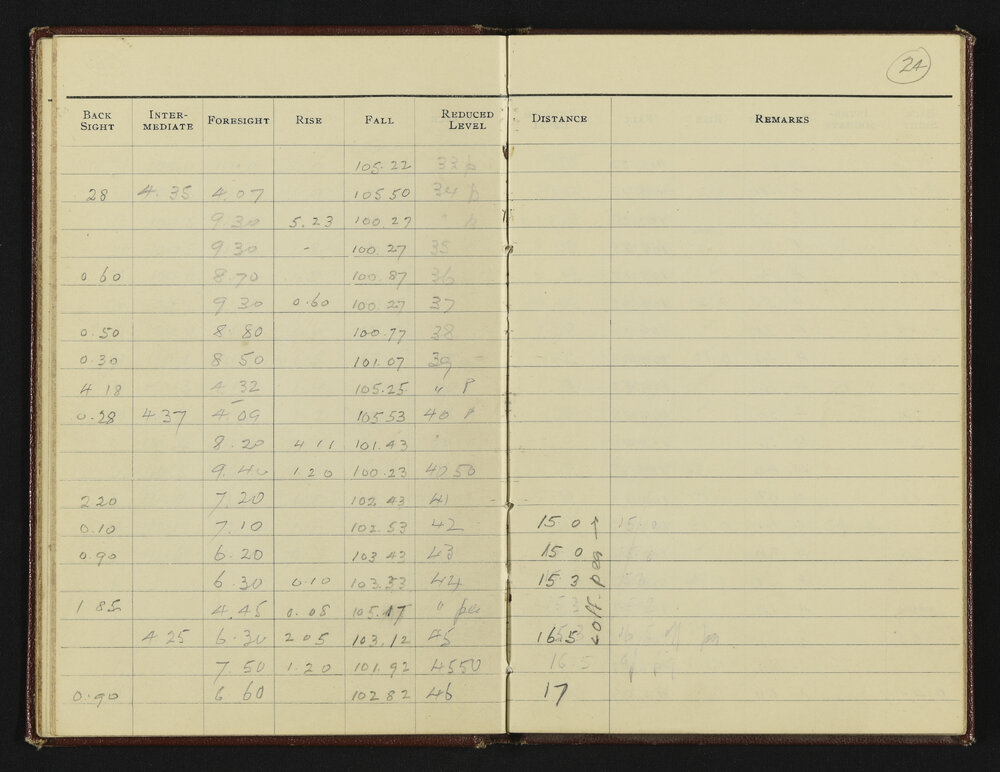 24
BACK SIGHT INTER-MEDIATE FORESIGHT RISE FALL REDUCED LEVEL DISTANCE REMARKS
105.22 33 p
.28 4.35 4.07 105 50 34 p
9.30 5.23 100.27 " p
9.30 - 100.27 35
0.60 8.70 100.87 36
9.30 0.60 100.27 37
0.50 8.80 100.77 38
0.30 8.50 101.07 39
4 18 4 32 105.25 " P
0.28 4 37 4 09 105.53 40 P
8.20 4 11 101.43
9.40 1 20 100.23 4050
2 20 7.20 102.43 41
0.10 7.10 102.53 42 15 0 15.0
0.90 6.20 103 43 43 15 0
6.30 0.10 103.33 44 15 3
1 85 4.45 0.08 105.17 " peg
4 25 6.30 2 05 103.12 45 16.5 16.5 off peg
7.50 1.20 101.92 4550 16.5
0.90 6 60 102 82 46 17
off. peg